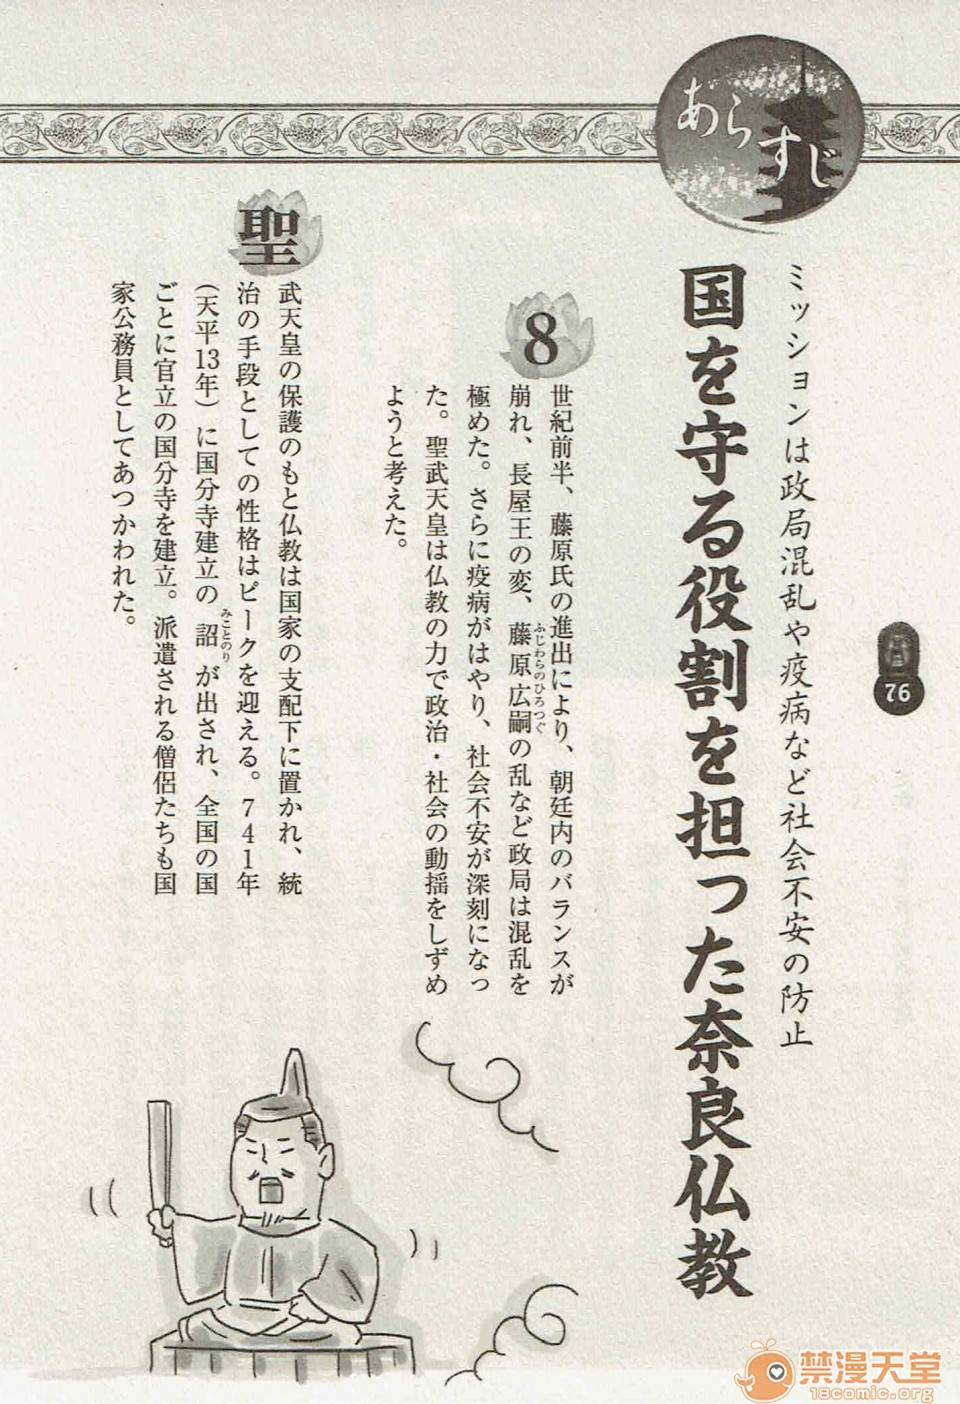 あらすじ
ミッションは政局混乱や疫病など社会不安の防止
国を守る役割を担った奈良仏教
76
8
世紀前半、藤原氏の進出により、朝廷内のバランスが
崩れ、長屋王の変、藤原広嗣の乱など政局は混乱を
ふじわらのひろつぐ
極めた。さらに疫病がはやり、社会不安が深刻になっ
た。聖武天皇は仏教の力で政治・社会の動揺をしずめ
ようと考えた。
聖
武天皇の保護のもと仏教は国家の支配下に置かれ、統
治の手段としての性格はピークを迎える。741年
(天平13年)に国分寺建立の詔が出され、全国の国
みことのり
ごとに官立の国分寺を建立。派遣される僧侶たちも国
家公務員としてあつかわれた。
禁漫天堂
18comic.org